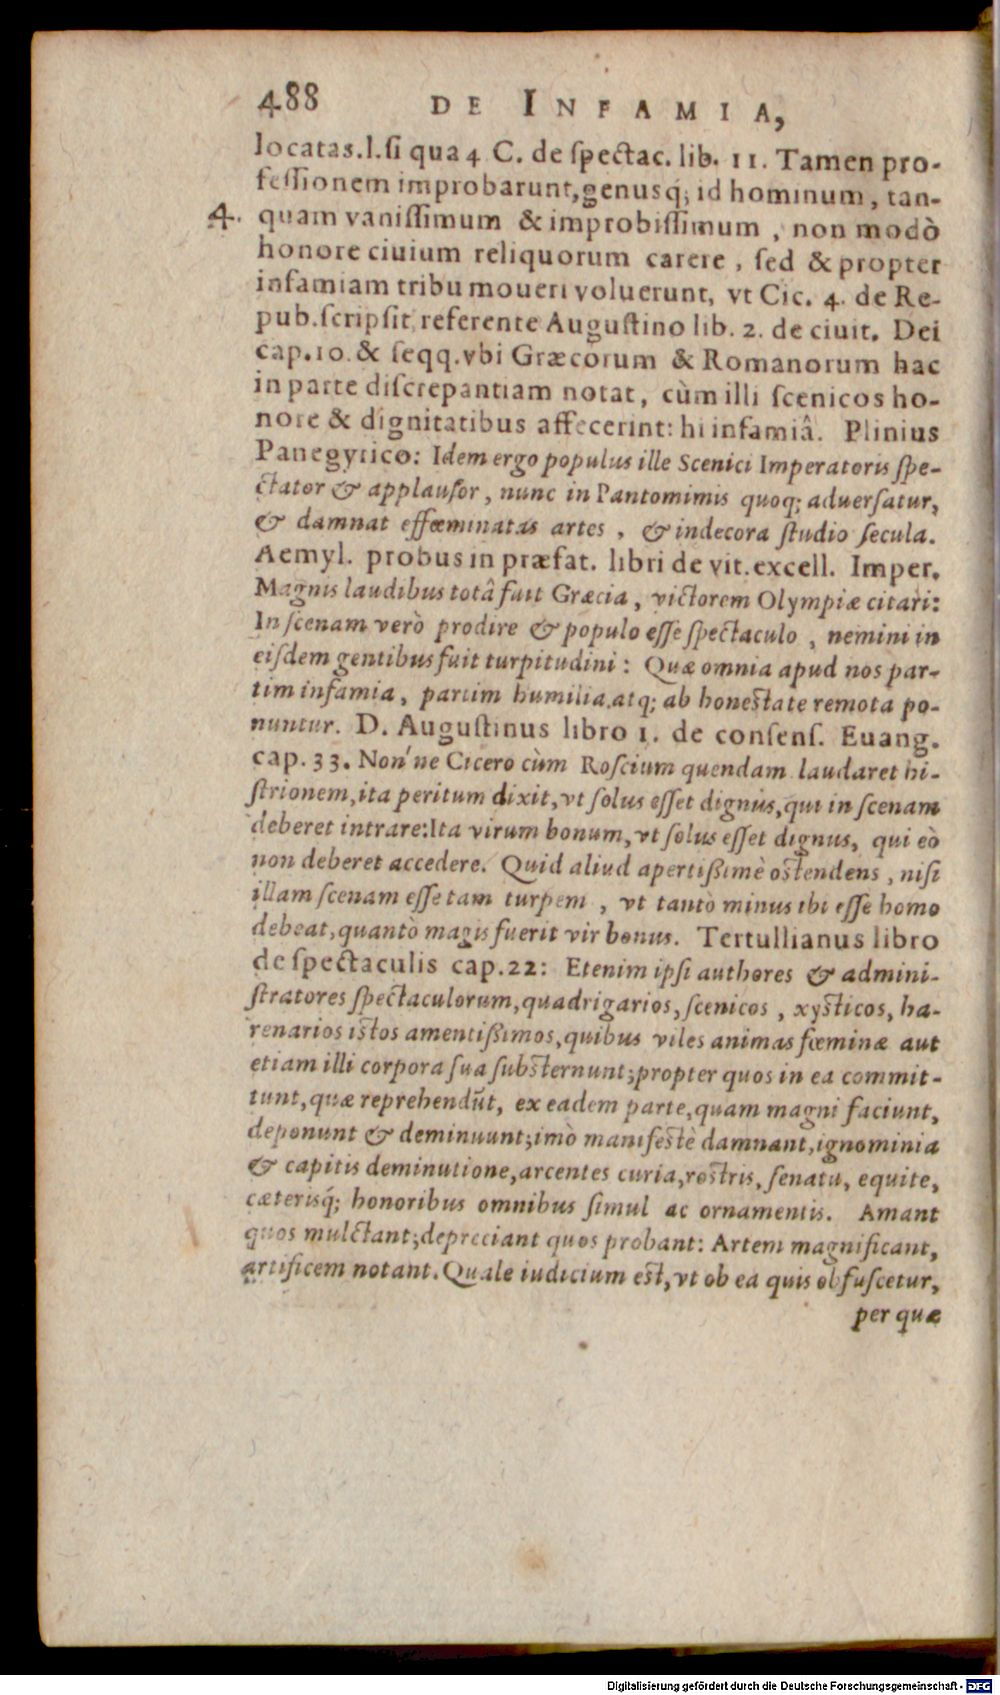 488 DE INFAMIA,
locatas.l.ſi qua 4 C. de ſpectac. lib. 11. Tamen pro-
feſſionem improbarunt, genusq́; id hominum, tan-
4. quam vaniſſimum & improbiſſimum, non modò
honore ciuium reliquorum carere, ſed & propter
infamiam tribu moueri voluerunt, vt Cic. 4. de Re-
pub.ſcripſit, referente Auguſtino lib. 2. de ciuit. Dei
cap.10. & ſeqq.vbi Græcorum & Romanorum hac
in parte diſcrepantiam notat, cùm illi ſcenicos ho-
nore & dignitatibus affecerint: hi infamiâ. Plinius
Panegyrico: Idem ergo populus ille Scenici Imperatoris ſpe-
ctator & applauſor, nunc in Pantomimis quoq; aduerſatur,
& damnat effœminatas artes, & indecora ſtudio ſecula.
Aemyl. probus in præfat. libri de vit.excell. Imper.
Magnis laudibus totâ fuit Græcia, victorem Olympiæ citari:
In ſcenam verò prodire & populo eſſe ſpectaculo, nemini in
eiſdem gentibus fuit turpitudini: Quæ omnia apud nos par-
tim infamia, partim humilia.atq; ab honeſtate remota po-
nuntur. D. Auguſtinus libro 1. de conſenſ. Euang.
cap. 33. Non' ne Cicero cùm Roſcium quendam laudaret hi-
ſtrionem, ita peritum dixit, vt ſolus eſſet dignus, qui in ſcenam
deberet intrare:Ita virum bonum, vt ſolus eſſet dignus, qui eò
non deberet accedere. Quid aliud apertißimè oſtendens, niſi
illam ſcenam eſſe tam turpem, vt tantò minus ibi eſſe homo
debeat, quantò magis fuerit vir bonus. Tertullianus libro
de ſpectaculis cap.22: Etenim ipſi authores & admini-
ſtratores ſpectaculorum, quadrigarios, ſcenicos, xyſticos, ha-
renarios iſtos amentißimos, quibus viles animas fœminæ aut
etiam illi corpora ſua ſubſternunt; propter quos in ea commit-
tunt, quæ reprehendũt, ex eadem parte, quam magni faciunt,
deponunt & deminuunt; imò manifeſtè damnant, ignominia
& capitis deminutione, arcentes curia, roſtris, ſenatu, equite,
cæterisq́; honoribus omnibus ſimul ac ornamentis. Amant
quos mulctant; depreciant quos probant: Artem magnificant,
artificem notant. Quale iudicium eſt, vt ob ea quis obfuſcetur,
per quæ
Digitalisierung gefördert durch die Deutsche Forschungsgemeinschaft - DFG